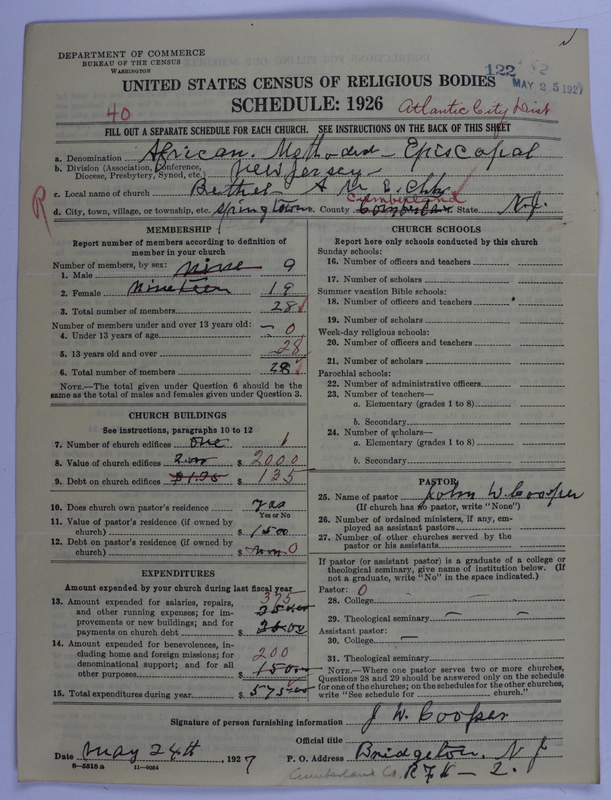 DEPARTMENT OF COMMERCE
BUREAU OF THE CENSUS
WASHINGTON
122
MAY 25 1927
UNITED STATES CENSUS OF RELIGIOUS BODIES
SCHEDULE: 1926
40
Atlantic City Dist
FILL OUT A SEPARATE SCHEDULE FOR EACH CHURCH. SEE INSTRUCTIONS ON THE BACK OF THIS SHEET
a. Denomination African. Methodist - Episcopal
b. Division (Association, Conference, Diocese, Presbytery, Synod, etc.) New Jersey
R
c. Local name of church Bethel A M E. Chh
d. City, town, village, or township, etc. Springtown County Cumberland State N.J.
MEMBERSHIP
Report number of members according to definition of
member in your church
Number of members, by sex:
1. Male nine 9
2. Female nineteen 19
3. Total number of members 28
Number of members under and over 13 years old:
4. Under 13 years of age — 0
5. 13 years old and over 28
6. Total number of members 28
NOTE.—The total given under Question 6 should be
same as the total of males and females given under Question 3.
CHURCH BUILDINGS
See instructions, paragraphs 10 to 12
7. Number of church edifices one 1
8. Value of church edifices $ 2000
9. Debt on church edifices $1.35 $ 135
10. Does church own pastor's residence yes
Yes or No
11. Value of pastor's residence (if owned by
church) $ 1500
12. Debt on pastor's residence (if owned by
church) $ 0
EXPENDITURES
Amount expended by your church during last fiscal year
13. Amount expended for salaries, repairs,
and other running expenses; for im-
provements or new buildings; and for
payments on church debt $ 375
14. Amount expended for benevolences, in-
cluding home and foreign missions; for
denominational support; and for all
other purposes $ 200
15. Total expenditures during year $ 575.00
CHURCH SCHOOLS
Report here only schools conducted by this church
Sunday schools:
16. Number of officers and teachers
17. Number of scholars
Summer vacation Bible schools:
18. Number of officers and teachers
19. Number of scholars
Week-day religious schools:
20. Number of officers and teachers
21. Number of scholars
Parochial schools:
22. Number of administrative officers
23. Number of teachers—
a. Elementary (grades 1 to 8)
b. Secondary
24. Number of scholars—
a. Elementary (grades 1 to 8)
b. Secondary
PASTOR
25. Name of pastor John W. Cooper
(If church has no pastor, write "None")
26. Number of ordained ministers, if any, em-
ployed as assistant pastors
27. Number of other churches served by the
pastor or his assistants
If pastor (or assistant pastor) is a graduate of a college or
theological seminary, give name of institution below. (If
not a graduate, write "No" in the space indicated.)
Pastor: 0
28. College
29. Theological seminary — —
Assistant pastor:
30. College —
31. Theological seminary
NOTE.—Where one pastor serves two or more churches,
Questions 28 and 29 should be answered only on the schedule
for one of the churches; on the schedules for the other churches,
write "See schedule for church."
Signature of person furnishing information J. W. Cooper
Official title
Date May 24th, 1927
P. O. Address Bridgeton, N. J.
8—5518 a 11—9084
Cumberland Co. R.F.D — 2.